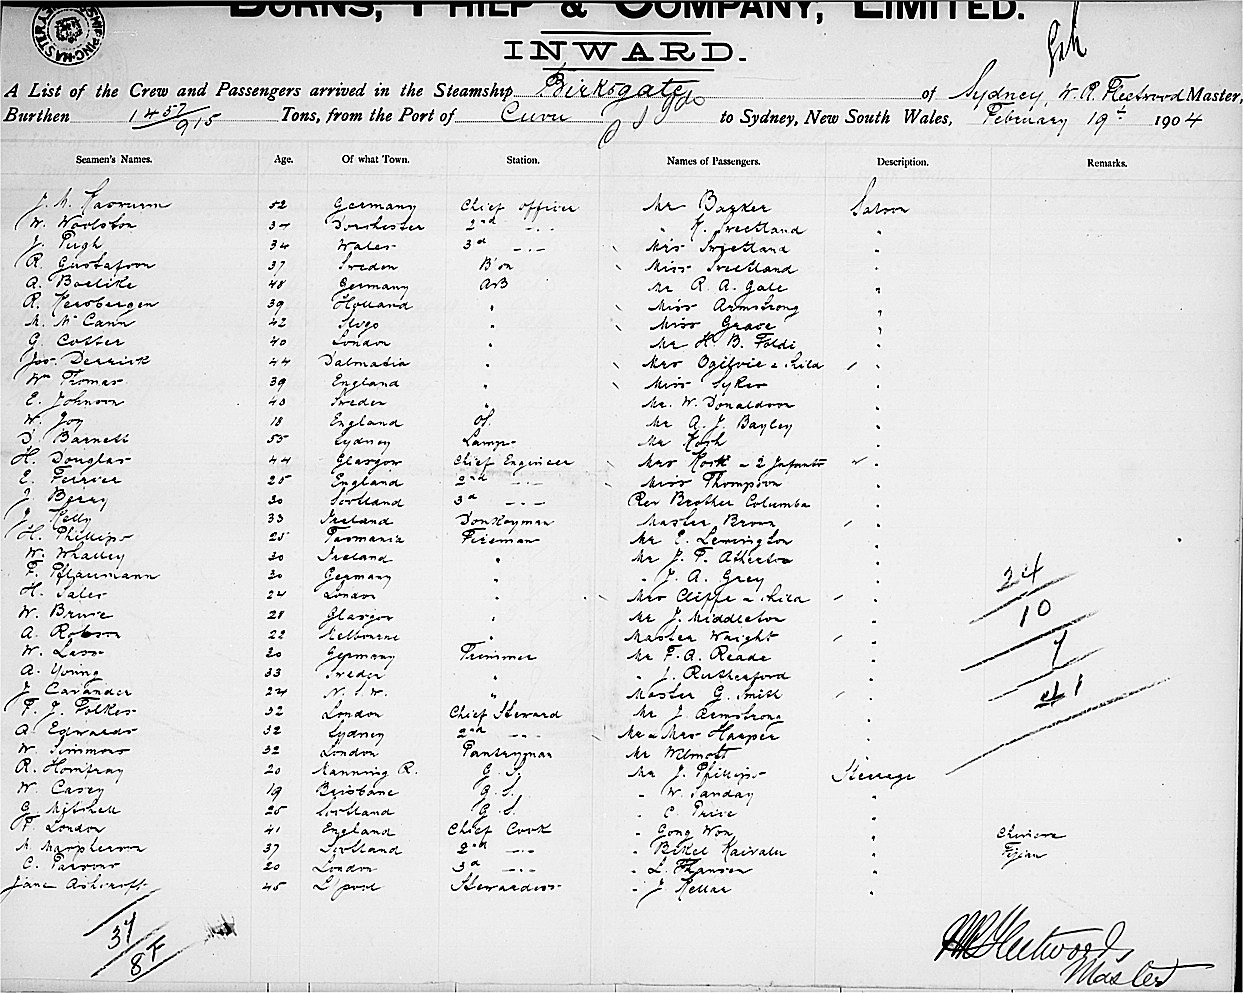 BURNS, PHILP & COMPANY, LIMITED.
INWARD.
A List of the Crew and Passengers arrived in the Steamship Birksgate of Sydney, W. R. Fleetwood Master,
Burthen 1457/915 Tons, from the Port of Suva to Sydney, New South Wales, February 19th 1904
Seamen's Names. Age. Of what Town. Station. Names of Passengers. Description. Remarks.
52 Germany Chief Officer Mr Barker Saloon
W. Woolston 34 Dorchester 2nd -"- " K. Sweetland "
J. Pugh 34 Wales 3d -"- Mrs Sweetland "
R. Gustafson 37 Sweden B'on Miss Sweetland "
A. Boelike 48 Germany AB Mr R. A. Gale "
R. Hersbergen 39 Holland " Miss Armstrong "
M. McCann 42 Sligo " Miss Grace "
G. Cotter 40 London " Mr H. B. Foldi "
Jos. Derrick 44 Dalmatia " Mrs Ogilvie & Child "
Wm Thomas 39 England " Miss Sykes "
E. Johnson 43 Sweden " Mr. W. Donaldson "
W. Joy 18 England OS. Mr A. J. Bayley "
D. Barnett 55 Sydney Lamps Mr Kosh "
H. Douglas 44 Glasgow Chief Engineer Mrs Kosh & 2 Infants "
E. Ferrier 25 England 2nd -"- Miss Thompson "
J. Berry 30 Scotland 3d -"- Rev Brother Columba "
J. Kelly 33 Ireland Donkeyman Master Brown "
H. Phillips 25 Tasmania Fireman Mr E. Lemington "
W. Whalley 30 Ireland " Mr J. F. Atherton "
F. Pflaumann 30 Germany " " J. A. Grey "
H. Sales 24 London " Mrs Cliffe & Child "
W. Bruce 28 Glasgow " Mr J. Middleton "
A. Robson 22 Melbourne " Master Wright "
W. Lass 30 Germany Trimmer Mr F. A. Reade "
A. Young 33 Sweden " " J. Rutherford "
J. Cavander 24 N.S.W. " Master G. Smith "
F. J. Folkes 32 London Chief Steward Mr J. Armstrong "
A. Edwards 32 Sydney 2nd -"- Mr & Mrs Harper "
W. Simmons 32 London Pantryman Mr Wilmott "
R. Homfray 20 Manning R. G.S. Mr J. Phillips Steerage
W. Casey 19 Brisbane G.S. " W. Sanday "
G. Mitchell 25 Scotland G.S. " C. Price "
F. London 41 England Chief Cook " Gong Won " Chinese
M. Macpherson 37 Scotland 2nd -"- " Bikel Kaivalu " Fijian
C. Parsons 20 London 3d -"- " L. Thansen "
Jane Ashcroft 45 L'pool Stewardess " J. Kellar "
24
10
7
41
37
8F
W R Fleetwood
Master